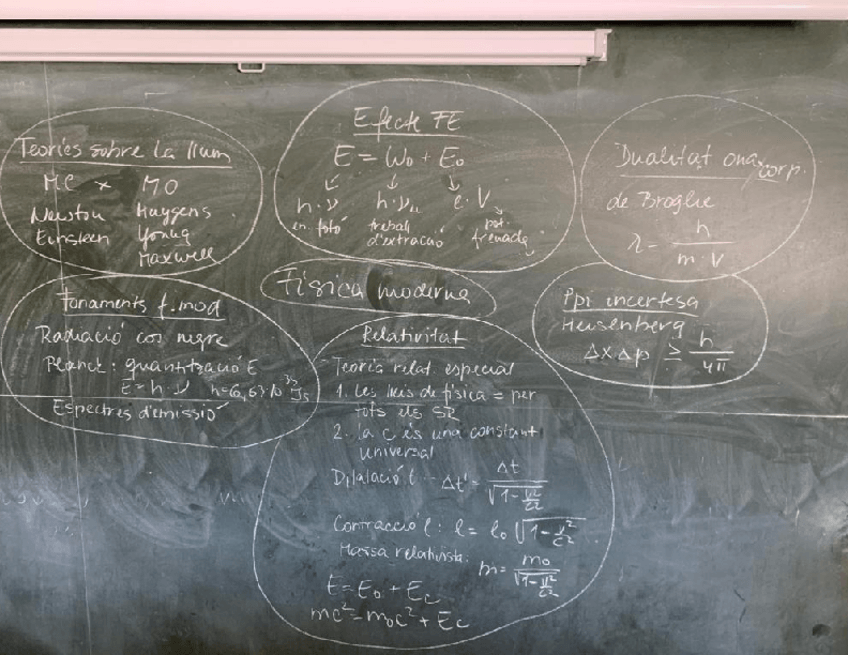 Teories sobre la llum
MC x MO
Newton Huygens
Einsteen Young
Maxwell
Efecte FE
E = W₀ + E₀
h·ν h·ν₀ e·V
en. fotó treball d'extracció pot. frenada
Dualitat ona corp.
de Broglie
λ = h / m·v
Física moderna
Fonaments f. mod
Radiació cos negre
Planck: quantització E
E = h·ν h=6,63·10 Js
Espectres d'emissió
Relativitat
Teoria relat. especial
1. Les lleis de física = per
tots els SR
2. la c és una constant
universal
Dilatació t Δt' = Δt / √(1 - v²/c²)
Contracció l: l = l₀ √(1 - v²/c²)
Massa relativista: m = m₀ / √(1 - v²/c²)
E = E₀ + Ec
mc² = m₀c² + Ec
Ppi incertesa
Heisenberg
Δx·Δp ≥ h / 4π